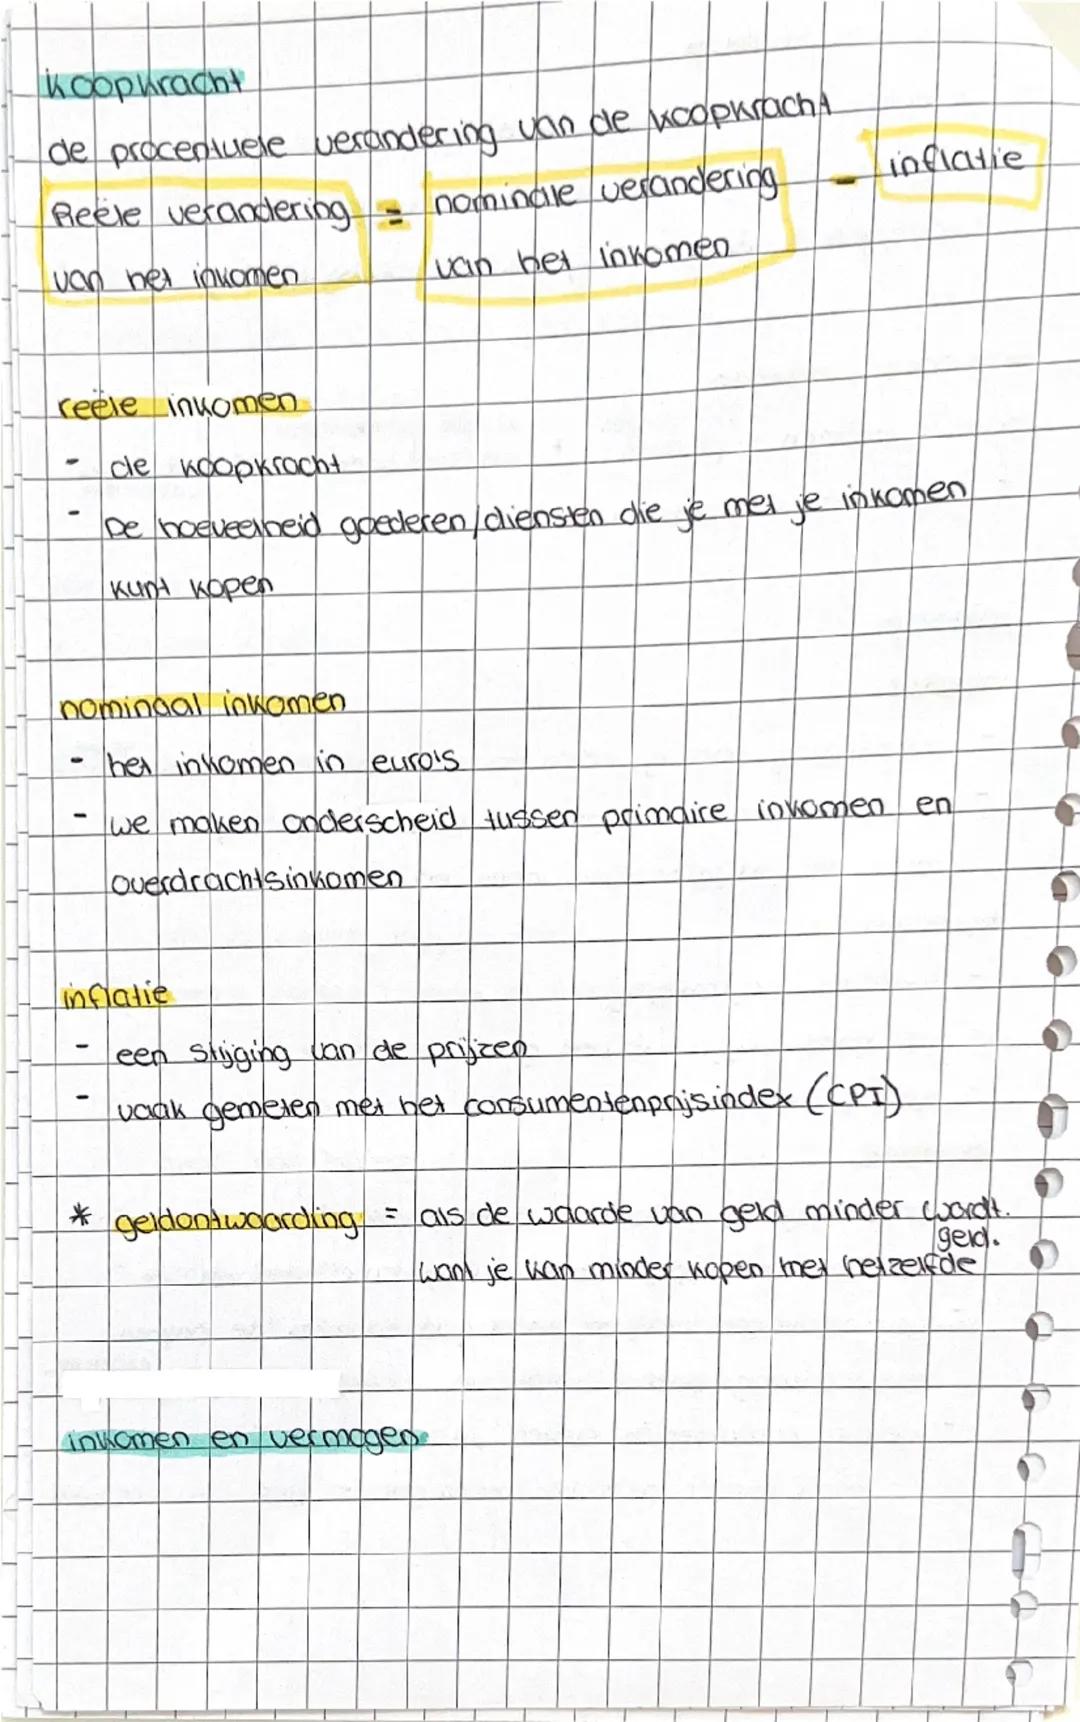 koopkracht
de procentuele verandering van de koopkracht
Reële verandering = nominale verandering - inflatie
van het inkomen van het inkomen
reële inkomen
- de koopkracht
- De hoeveelheid goederen/diensten die je met je inkomen
kunt kopen
nominaal inkomen
- het inkomen in euro's
- we maken onderscheid tussen primaire inkomen en
overdrachtsinkomen
inflatie
- een stijging van de prijzen
- vaak gemeten met het consumentenprijsindex (CPI)
* geldontwaarding = als de waarde van geld minder wordt.
want je kan minder kopen met hetzelfde geld.
inkomen en vermogen